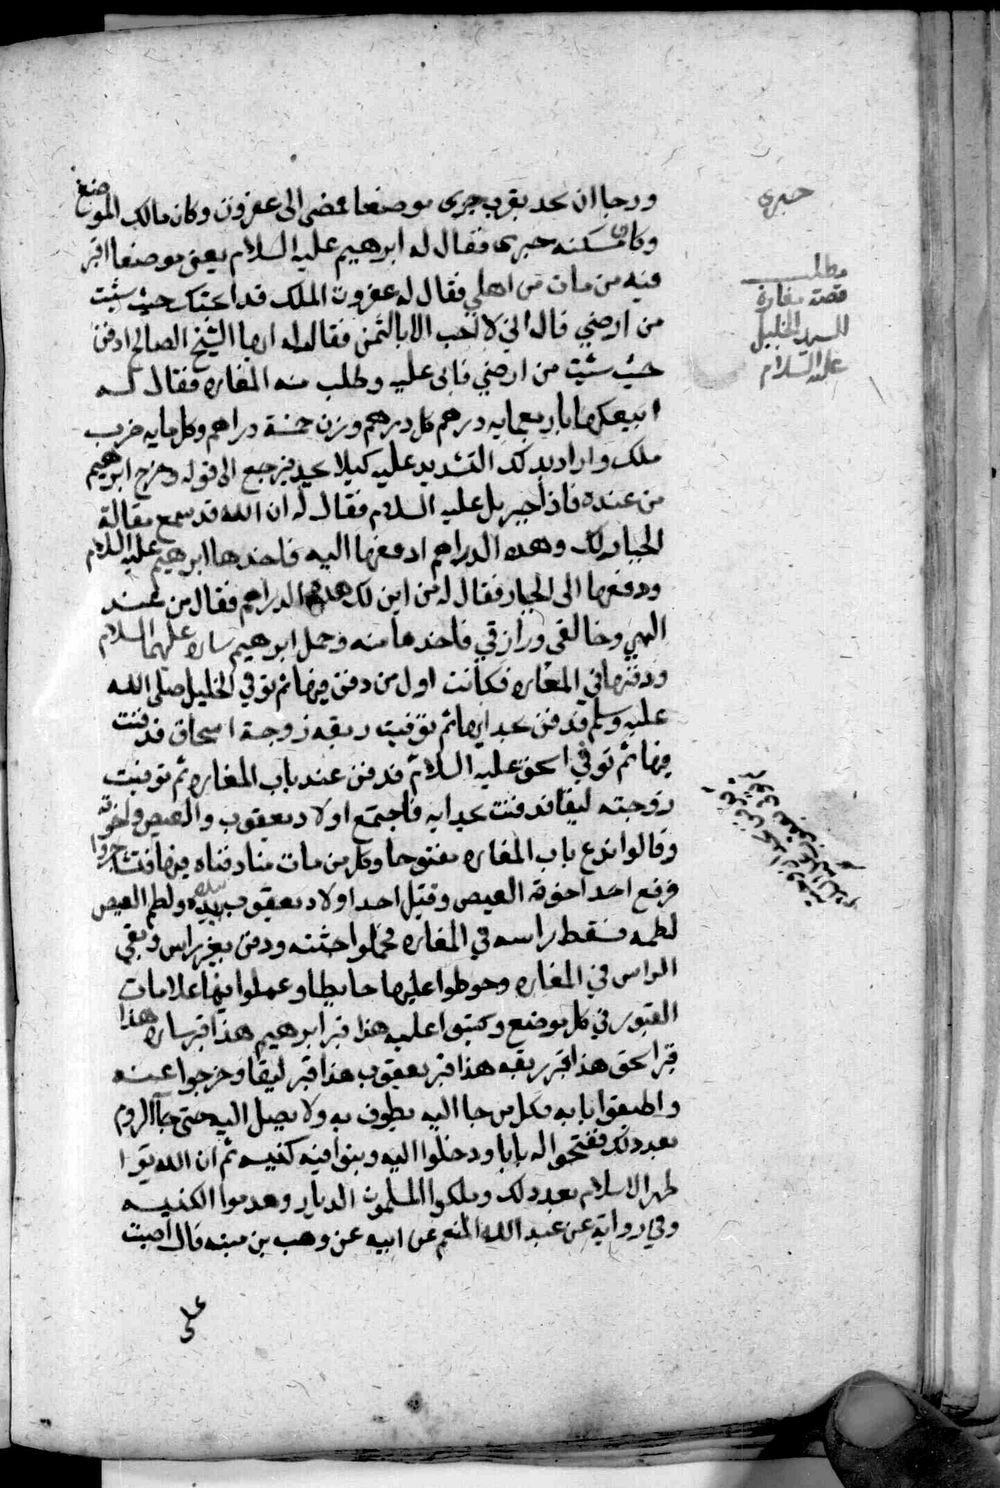 ورجا ان يجد بقرب حبرى موضعا فمضى الى عفرون وكان مالك الموضع
وكان مسكنه حبرى فقال له ابرهيم عليه السلام بعني موضعا اقبر
فيه من مات من اهلي فقال له عفرون الملك قد ابحتك حيث شئت
من ارضي قال اني لا احب الا بالثمن فقال له ايها الشيخ الصالح ادفن
حيث شئت من ارضي فابى عليه وطلب منه المغاره فقال له
ابيعكها باربعمايه درهم كل درهم وزن خمسة دراهم وكل مايه ضرب
ملك واراد بذلك التشديد عليه كيلا يجد فيرجع الى قوله وخرج ابرهيم
من عنده فاذا جبريل عليه السلام فقال له ان الله قد سمع مقالة
الجبار لك وهذه الدراهم ادفعها اليه فاخذها ابرهيم عليه السلام
ودفعها الى الجبار فقال له من اين لك هذه الدراهم فقال من عند
الهي وخالقي ورازقي فاخذها منه وحمل ابرهيم ساره عليهما السلام
ودفنها في المغاره فكانت اول من دفن فيها ثم توفي الخليل صلى الله
عليه وسلم فدفن بحدايها ثم توفيت ربقه زوجة اسحاق فدفنت
فيها ثم توفي اسحق عليه السلام فدفن عند باب المغاره ثم توفيت
زوجته ليقا فدفنت بحدايه فاجتمع اولاد يعقوب والعيص واخوته
وقالوا ندع باب المغاره مفتوحا وكل من مات منا دفناه فيها فتشاجروا
فرفع احد اخوة العيص وقيل احد اولاد يعقوب يده ولطم العيص
لطمه فسقط راسه في المغاره فحملوا جثته ودفن بغير راس وبقي
الراس في المغاره وحوطوا عليها حايطا وعملوا فيها علامات
القبور في كل موضع وكتبوا عليه هذا قبر ابرهيم هذا قبر ساره هذا
قبر اسحق هذا قبر ربقه هذا قبر يعقوب هذا قبر ليقا وخرجوا عنه
واطبقوا بابه فكل من جا اليه يطوف به ولا يصل اليه حتى جآ الروم
بعد ذلك ففتحوا له بابا ودخلوا اليه وبنوا فيه كنيسه ثم ان الله تعا
اظهر الاسلام بعد ذلك وملكوا المسلمون الديار وهدموا الكنيسه
وفي رواية عن عبد الله المنعم عن ابيه عن وهب بن منبه قال اصبت
على
حبرى
مطلب
قصة مغارة
السيد الخليل
عليه السلام